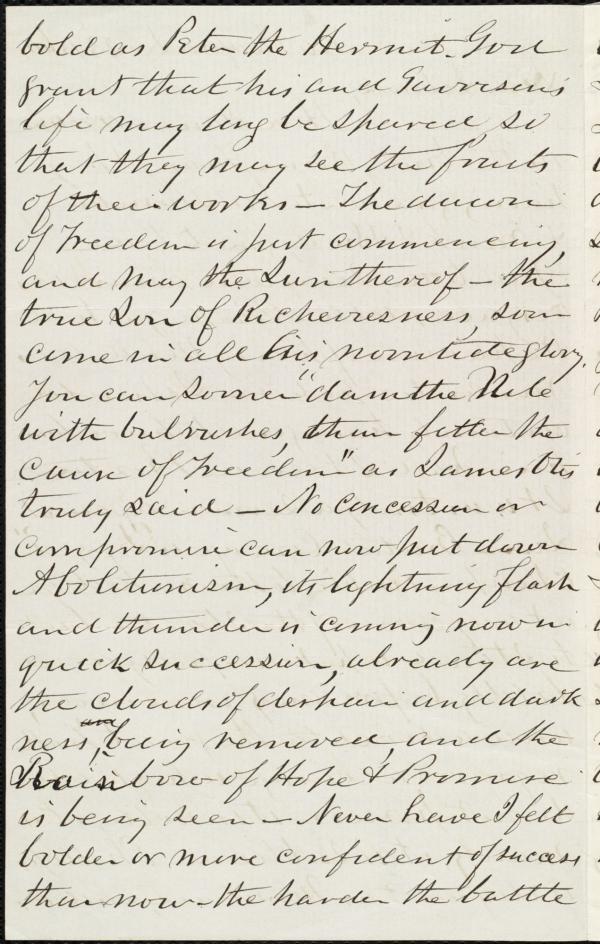 bold as Peter the Hermit. God
grant that his and Garrison's
life may long be spared, so
that they may see the fruits
of their works — The dawn
of Freedom is just commencing,
and may the Sun thereof — the
true Son of Richeousness, soon
come in all his noontide glory.
You can sooner "dam the Nile
with bulrushes, than fetter the
cause of Freedom" as James Otis
truly said — No concession or
compromise can now put down
Abolitionism, its lightning flash
and thunder is coming now in
quick succession, already are
the clouds of despair and dark
ness, being removed, and the
Rainbow of Hope & Promise
is being seen — Never have I felt
bolder or more confident of success
than now — the harder the battle